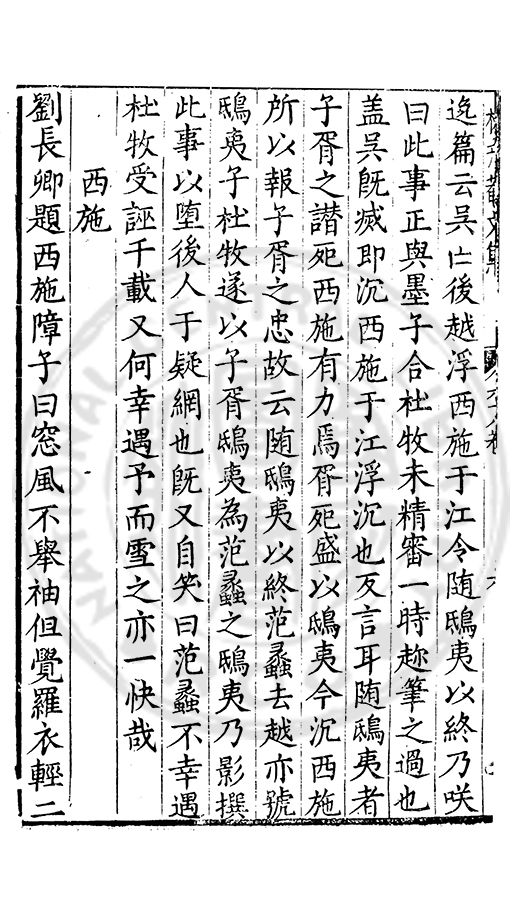 逸篇云吳亡後越浮西施于江令随鴟夷以終乃咲
曰此事正與墨子合杜牧未精審一時趂筆之過也
盖吳既滅即沉西施于江浮沉也反言耳随鴟夷者
子胥之譛死西施有力焉胥死盛以鴟夷今沉西施
所以報子胥之忠故云随鴟夷以終范蠡去越亦號
鴟夷子杜牧遂以子胥鴟夷為范蠡之鴟夷乃影撰
此事以堕後人于疑網也既又自笑曰范蠡不幸遇
杜牧受誣千載又何幸遇予而雪之亦一快哉
西施
劉長卿題西施障子曰窓風不舉袖但覺羅衣輕二